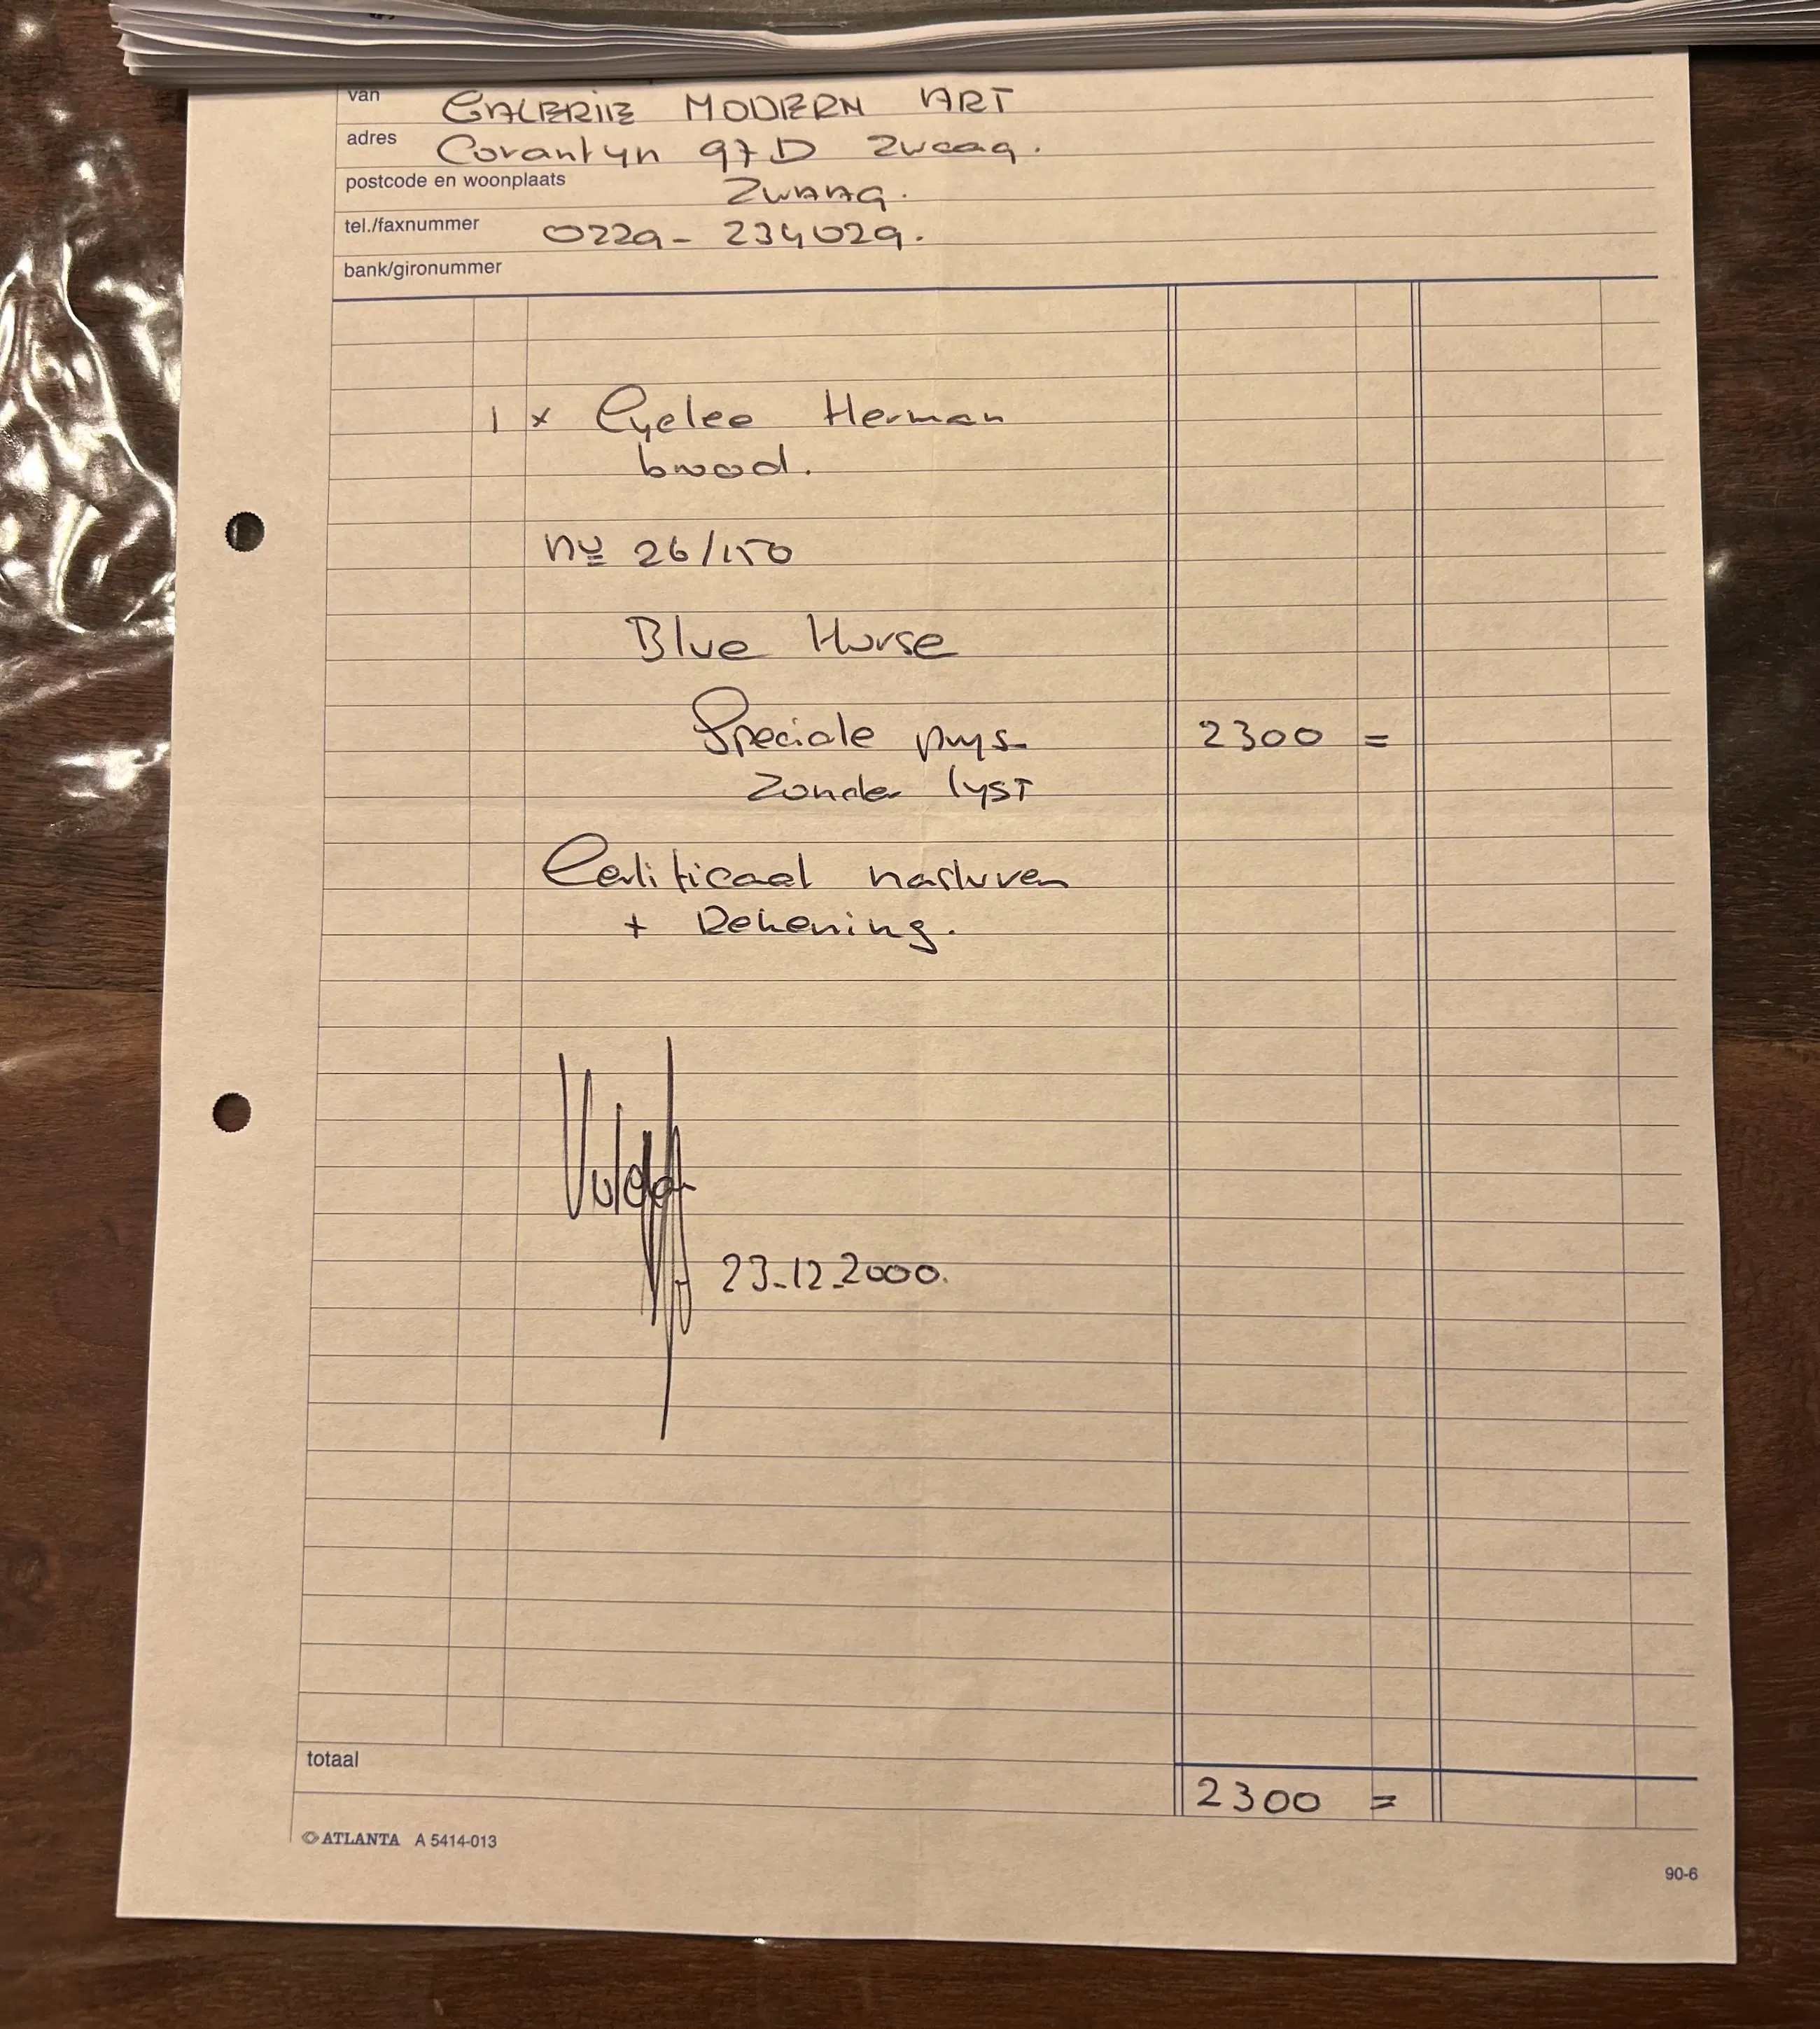 van GALERIE MODERN ART
adres Corantyn 97D Zwaag.
postcode en woonplaats ZWAAG.
tel./faxnummer 0229-234029.
bank/gironummer
1 x Cyclee Herman
brood.
nº 26/150
Blue Horse
Speciale prys 2300 =
Zonder lyst
Certificaat nasturen
+ Rekening.
23-12-2000.
totaal
2300 =
ATLANTA A 5414-013
90-6